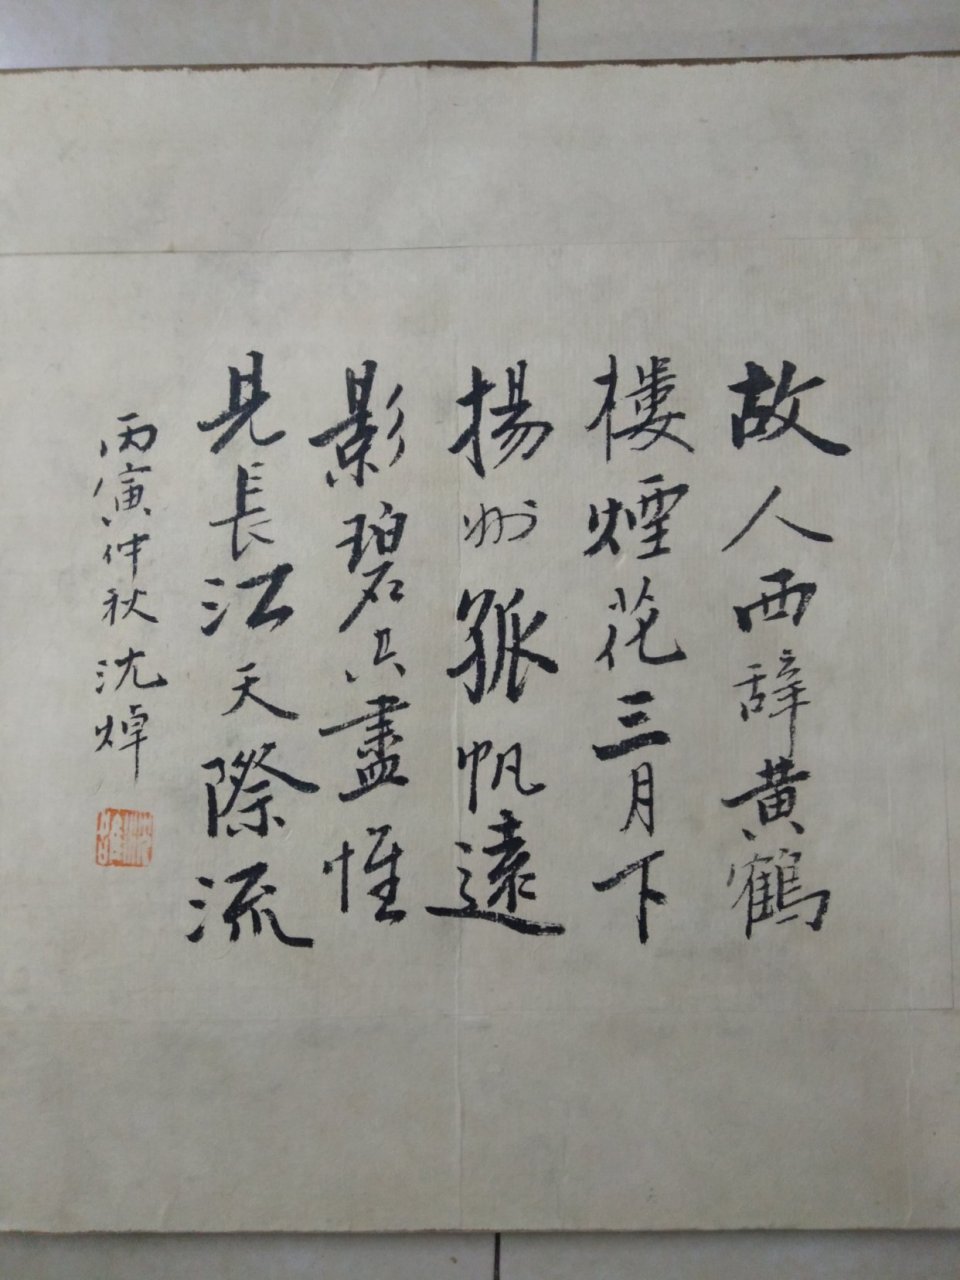 故人西辞黄鶴
樓煙花三月下
揚州孤帆遠
影碧空盡惟
見長江天際流
丙寅仲秋沈焯